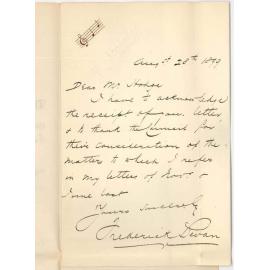 Augst 28th 1899
Dear Mr. Hodge
I have to acknowledge
the receipt of your letter
& to thank the Council for
their consideration of the
matters to which I refer
in my letters of Novr &
June last
Yours sincerely
Frederick